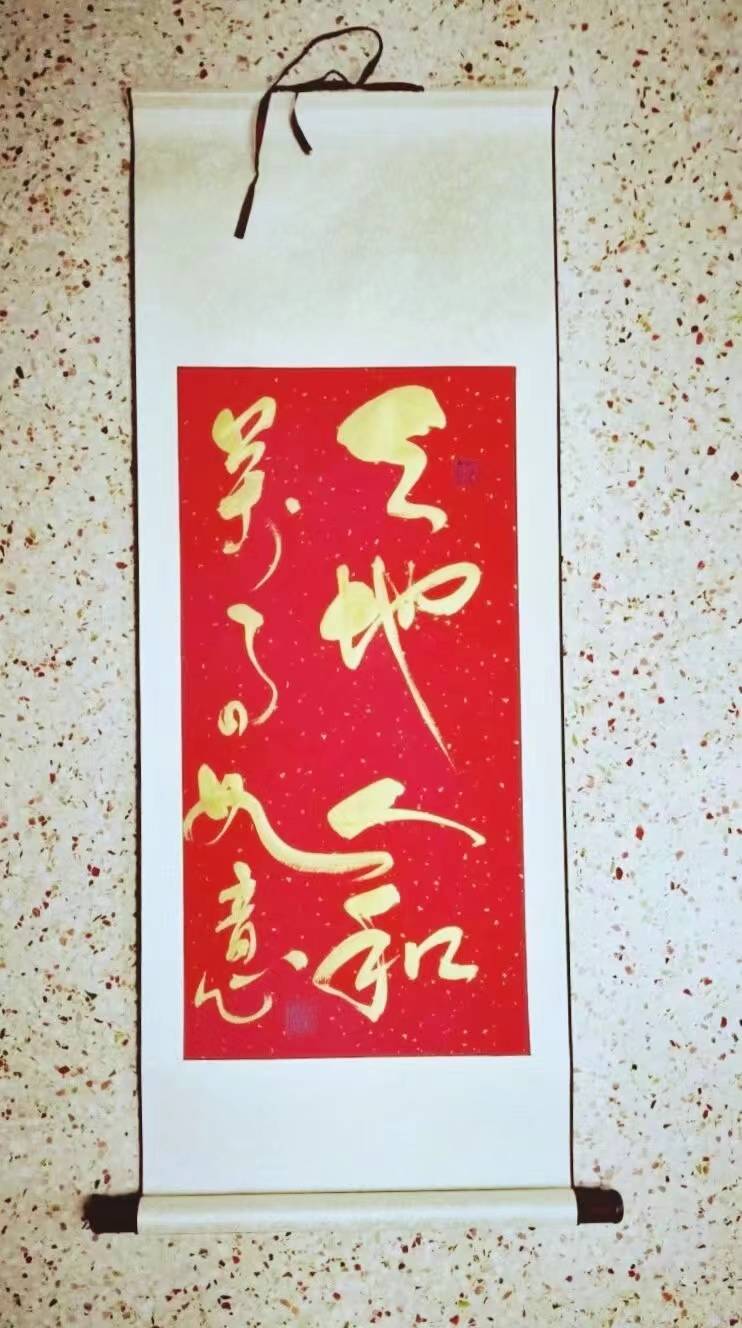 天地人和
萬事如意